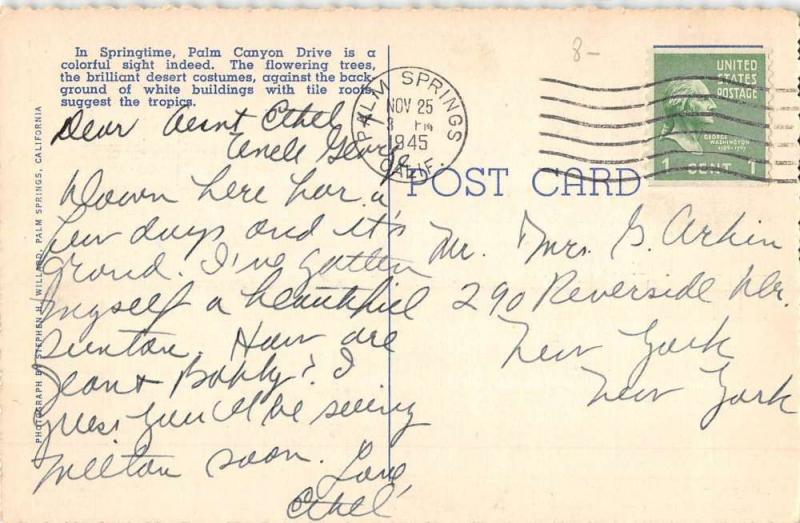 In Springtime, Palm Canyon Drive is a
colorful sight indeed. The flowering trees,
the brilliant desert costumes, against the back
ground of white buildings with tile roofs
suggest the tropics.
Dear Aunt Ethel +
Uncle George
Down here for a
few days and it's
grand. I've gotten
myself a beautiful
suntan. How are
Jean + Bobby? I
guess you'll be seeing
Milton soon. Love,
Ethel
PHOTOGRAPH BY STEPHEN H. WILLARD, PALM SPRINGS, CALIFORNIA
PALM SPRINGS
NOV 25
3 PM
1945
CALIF.
8-
UNITED
STATES
POSTAGE
GEORGE
WASHINGTON
1 CENT 1
POST CARD
Mr. Mrs. G. Arkin
290 Riverside Dr.
New York
New York